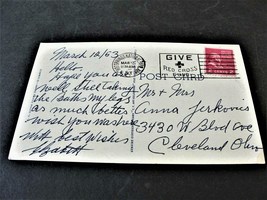 March 12/53
Hello,
Hope you are
well, Still taking
the baths My leg
as much better
wish you was here
With best Wishes
MAR 12
1953
GIVE
RED CROSS
POST CARD
Mr & Mrs
Anna Jerkovic
3430 W Blvd Ave
Cleveland Ohio